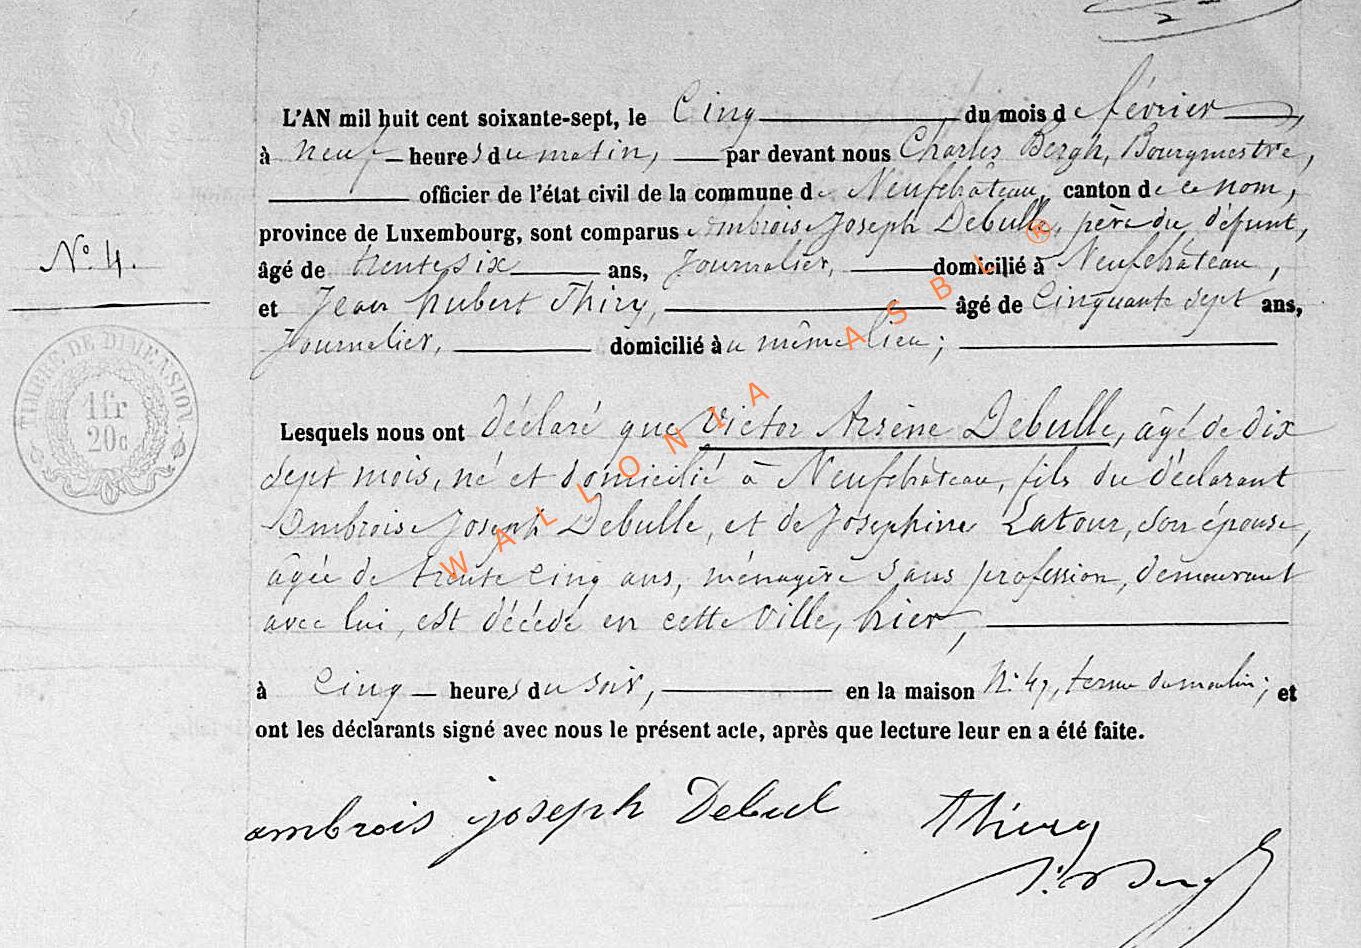 L'AN mil huit cent soixante-sept, le Cinq du mois de février,
à neuf heures du matin, par devant nous Charles Bergh, Bourgmestre,
officier de l'état civil de la commune de Neufchâteau, canton de ce nom,
province de Luxembourg, sont comparus Ambroise Joseph Debulle, père du défunt,
N.o 4.
âgé de trente six ans, Journalier, domicilié à Neufchâteau,
et Jean hubert Thiry, âgé de Cinquante sept ans,
Journalier, domicilié au même lieu;
TIMBRE DE DIMENSION
1 fr
20 c
Lesquels nous ont déclaré que Victor Arsène Debulle, âgé de dix
sept mois, né et domicilié à Neufchâteau, fils du déclarant
Ambroise Joseph Debulle, et de Joséphine Latour, son épouse,
âgée de trente cinq ans, ménagère sans profession, demeurant
avec lui, est décédé en cette Ville, hier,
à Cinq heures du soir, en la maison N.o 47, du moulin; et
ont les déclarants signé avec nous le présent acte, après que lecture leur en a été faite.
ambrois joseph Debul Thiry
WALLONIA ASBL ®